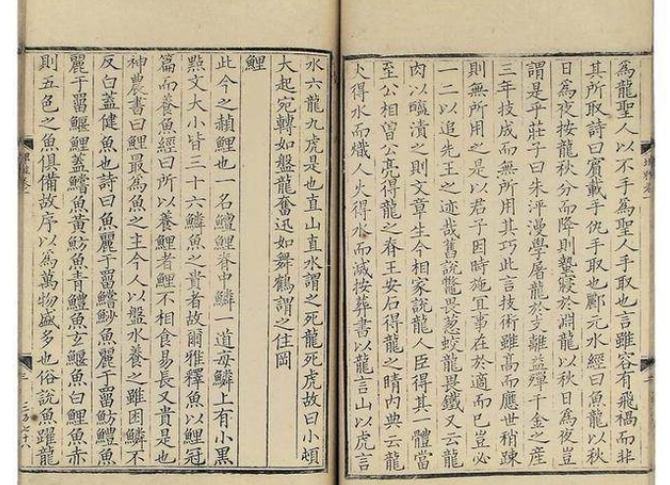 為龍聖人以不手為聖人手取也言雖容有飛禍而非
其所取詩曰賓載手仇手取也酈元水經曰魚龍以秋
日為夜按龍秋分而降則蟄寢於淵龍以秋日為夜豈
謂是乎莊子曰朱泙漫學屠龍於支離益殫千金之産
三年技成而無所用其巧此言技術雖高而應世稍踈
則無所用之是以君子因時施宜事在於適而已豈必
一二以追先王之迹哉舊說鼈畏葱蛟龍畏鐵又云龍
肉以醢漬之則文章生今相家說龍人臣得其一體當
至公相曽公亮得龍之脊王安石得龍之睛内典云龍
火得水而熾人火得水而滅按葬書以龍言山以虎言
水六龍九虎是也直山直水謂之死龍死虎故曰小頓
大起宛轉如盤龍奮迅如舞鶴謂之住岡
鯉
此今之赬鯉也一名鱣鯉脊中鱗一道每鱗上有小黑
點文大小皆三十六鱗魚之貴者故爾雅釋魚以鯉冠
篇而養魚經曰所以養鯉者鯉不相食易長又貴是也
神農書曰鯉最為魚之主今人以盤水養之雖困鱗不
反白蓋健魚也詩曰魚麗于罶鱨鯊魚麗于罶魴鱧魚
麗于罶鰋鯉蓋鱨魚黃魴魚青鱧魚玄鰋魚白鯉魚赤
則五色之魚俱備故序以為萬物盛多也俗說魚躍龍